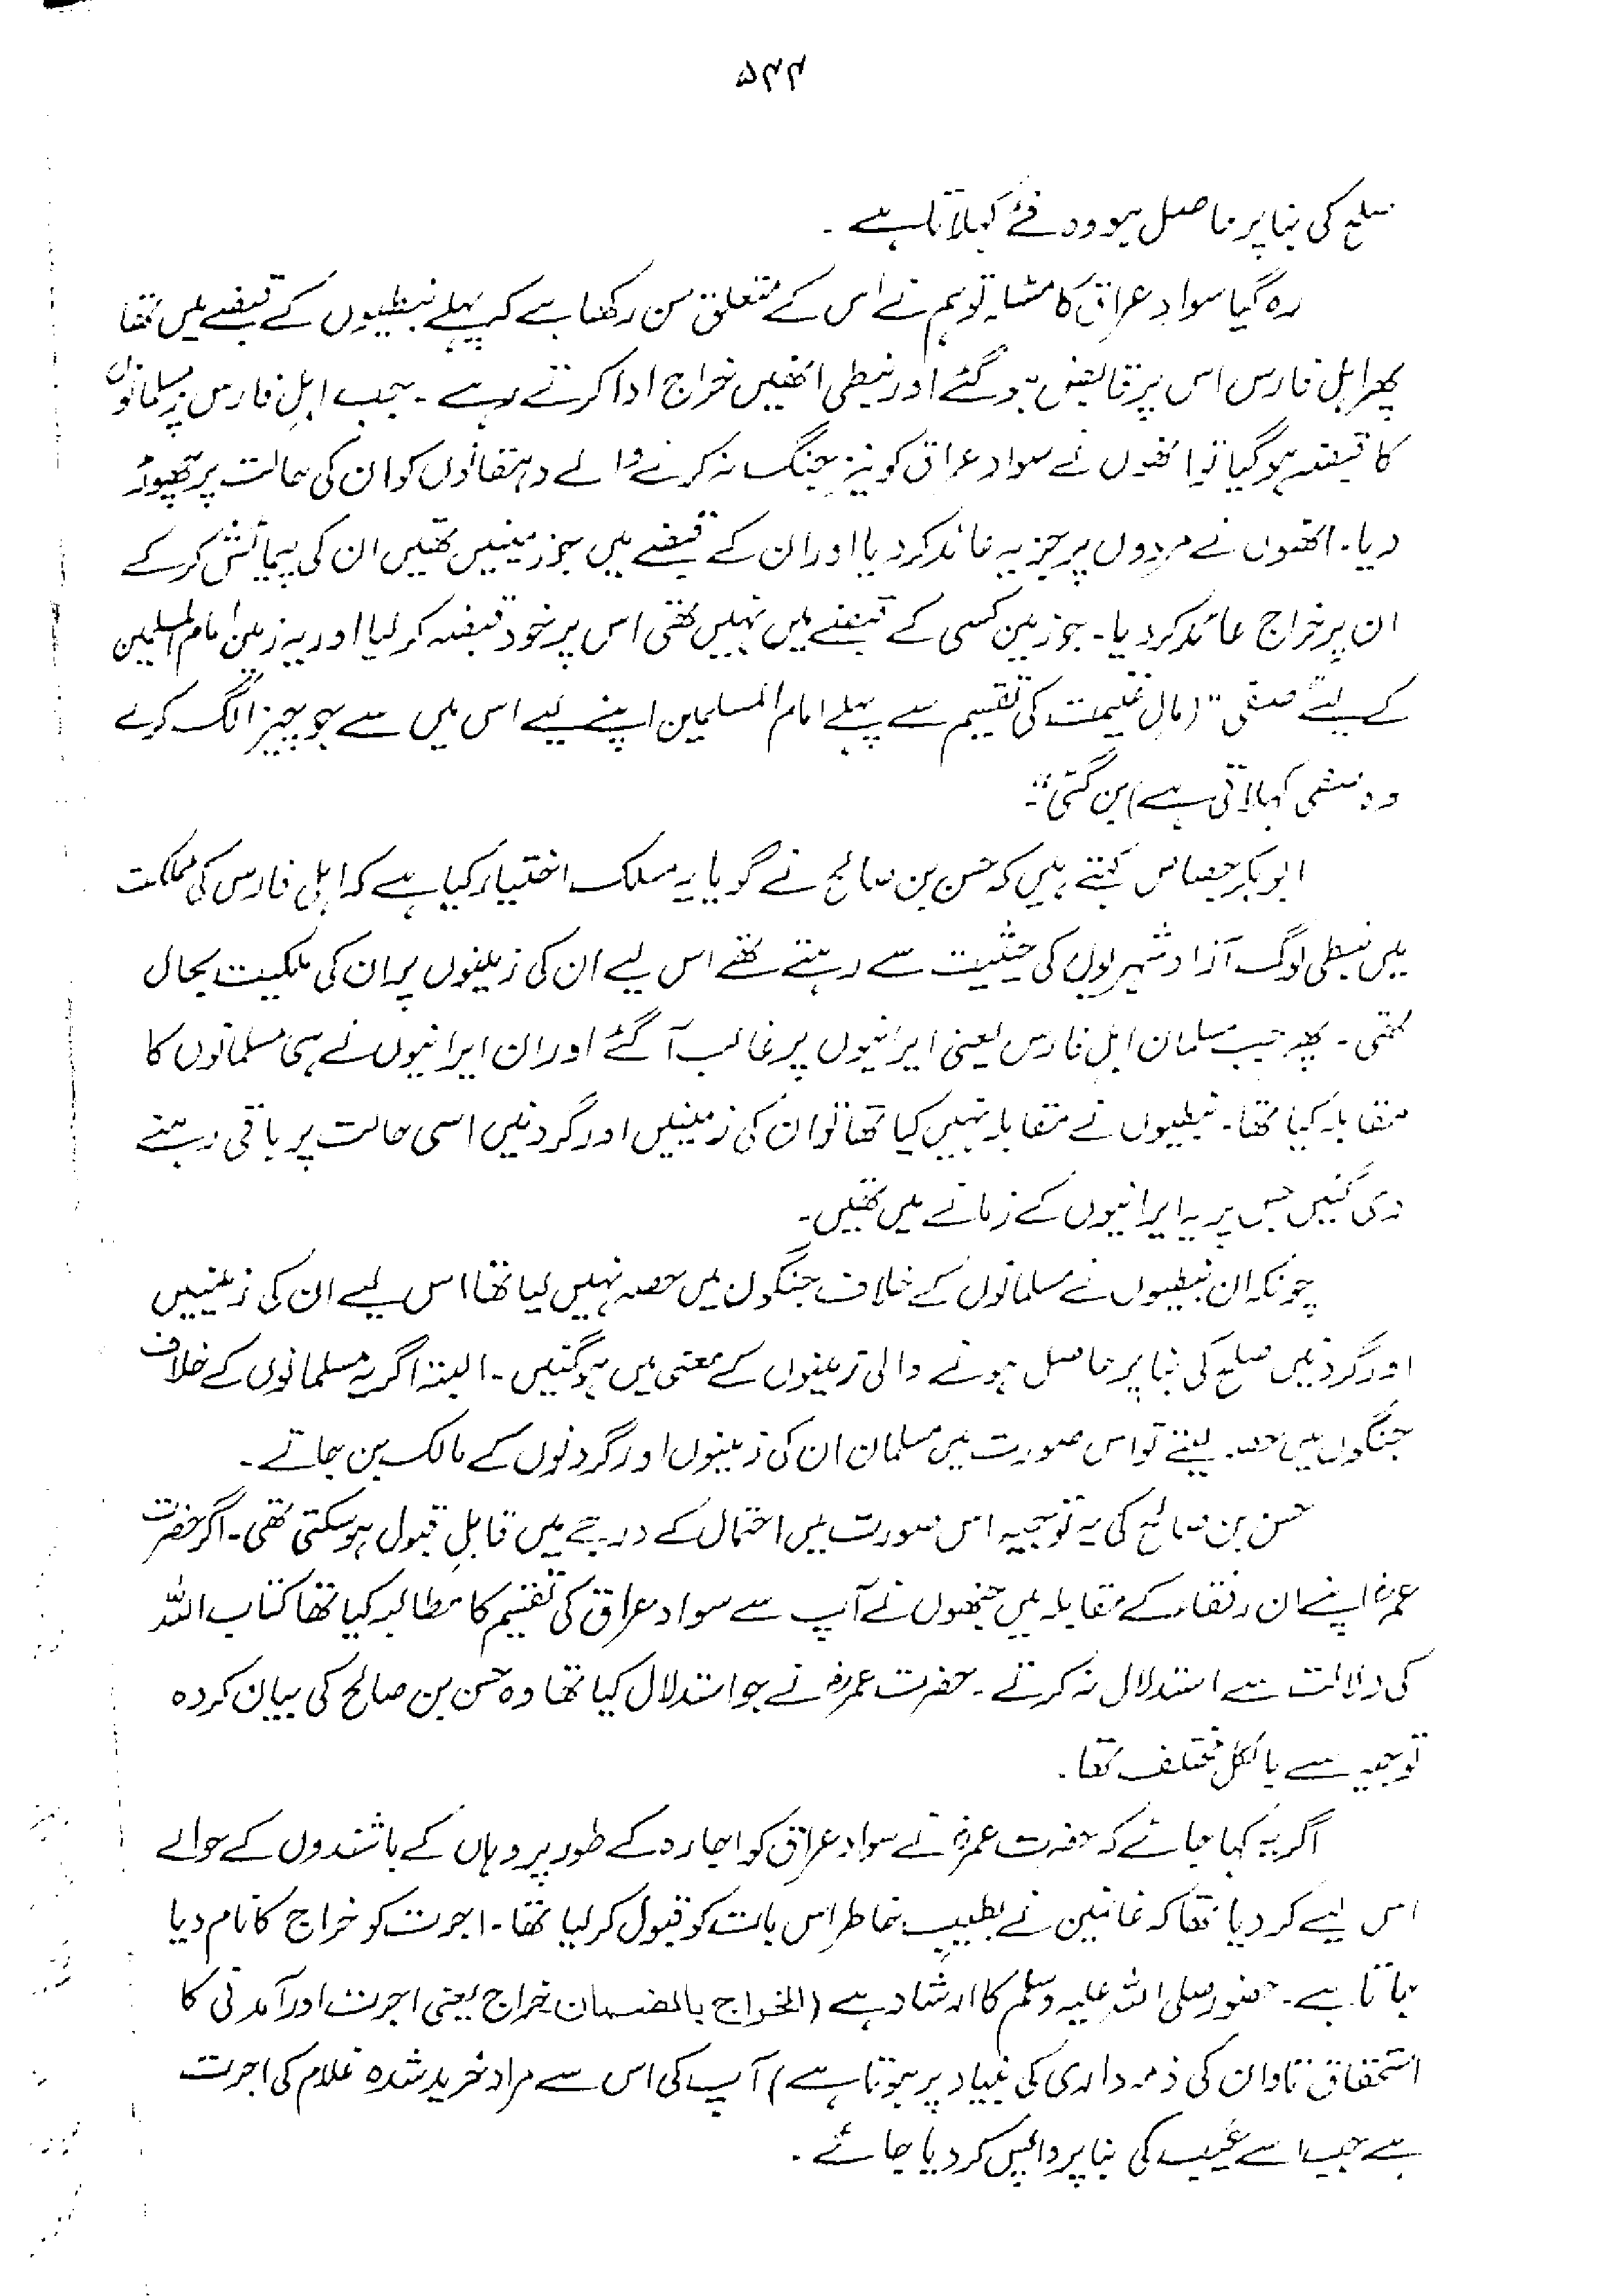 ۵۴۴
صلح کی بنا پر حاصل ہو وہ فئے کہلاتا ہے ۔
رہ گیا سواد عراق کا مسئلہ تو ہم نے اس کے متعلق سن رکھا ہے کہ پہلے نبطیوں کے قبضے میں تھا
پھر اہل فارس اس پر قابض ہو گئے اور نبطی انھیں خراج ادا کرتے رہے ۔ جب اہلِ فارس پر مسلمانوں
کا قبضہ ہو گیا تو انھوں نے سواد عراق کو نیز جنگ نہ کرنے والے دہقانوں کو ان کی حالت پر چھوڑ
دیا۔ انھوں نے مردوں پر جزیہ عائد کر دیا اور ان کے قبضے میں جو زمینیں تھیں ان کی پیمائش کر کے
ان پر خراج عائد کر دیا۔ جو زمین کسی کے قبضے میں نہیں تھی اس پر خود قبضہ کر لیا اور یہ زمین امام المسلمین
کے لیے صفی" (مال غنیمت کی تقسیم سے پہلے امام المسلمین اپنے لیے اس میں سے جو چیز الگ کرلے
وہ صفی کہلاتی ہے) بن گئی"۔
ابوبکر جصاص کہتے ہیں کہ حسن بن صالح نے گویا یہ مسلک اختیار کیا ہے کہ اہل فارس کی مملکت
میں نبطی لوگ آزاد شہریوں کی حیثیت سے رہتے تھے اس لیے ان کی زمینوں پر ان کی ملکیت بحال
تھی ۔ پھر جب مسلمان اہلِ فارس یعنی ایرانیوں پر غالب آ گئے اور ان ایرانیوں نے ہی مسلمانوں کا
مقابلہ کیا تھا ۔ نبطیوں نے مقابلہ نہیں کیا تھا تو ان کی زمینیں اور گردنیں اسی حالت پر باقی رہنے
دی گئیں جس پر یہ ایرانیوں کے زمانے میں تھیں۔
چونکہ ان نبطیوں نے مسلمانوں کے خلاف جنگوں میں حصہ نہیں لیا تھا اس لیے ان کی زمینیں
اور گردنیں صلح کی بنا پر حاصل ہونے والی زمینوں کے معنی میں ہو گئیں ۔ البتہ اگر یہ مسلمانوں کے خلاف
جنگوں میں حصہ لیتے تو اس صورت میں مسلمان ان کی زمینوں اور گردنوں کے مالک بن جاتے ۔
حسن بن صالح کی یہ توجیہ اس صورت میں احتمال کے درجے میں قابلِ قبول ہو سکتی تھی ۔ اگر حضرت
عمرؓ اپنے ان رفقاء کے مقابلہ میں جنھوں نے آپ سے سواد عراق کی تقسیم کا مطالبہ کیا تھا کتاب اللہ
کی دلالت سے استدلال نہ کرتے ۔ حضرت عمرؓ نے جو استدلال کیا تھا وہ حسن بن صالح کی بیان کردہ
توجیہ سے بالکل مختلف تھا ۔
اگر یہ کہا جائے کہ حضرت عمرؓ نے سواد عراق کو اجارہ کے طور پر وہاں کے باشندوں کے حوالے
اس لیے کر دیا تھا کہ غانمین نے بطیبِ خاطر اس بات کو قبول کر لیا تھا ۔ اجرت کو خراج کا نام دیا
جاتا ہے ۔ حضور صلی اللہ علیہ وسلم کا ارشاد ہے (الخراج بالضمان خراج یعنی اجرت اور آمدنی کا
استحقاق تاوان کی ذمہ داری کی بنیاد پر ہوتا ہے) آپ کی اس سے مراد خرید شدہ غلام کی اجرت
ہے جب اسے عیب کی بنا پر واپس کر دیا جائے ۔